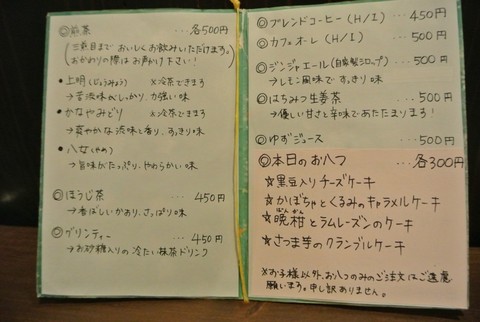 ◎煎茶 ...各500円
(三煎目まで おいしく お飲みいただけます。
おかわりの際は お声がけ下さい!)
・上明(じょうみょう) ※冷茶できます
→苦渋味がしっかり、力強い味
・かなやみどり ※冷茶できます
→爽やかな渋味と香り、すっきり味
・八女(やめ)
→旨味がたっぷり、やわらかい味
◎ほうじ茶 450円
→香ばしいかおり、さっぱり味
◎グリンティー ...450円
→お砂糖入りの冷たい抹茶ドリンク
◎ブレンドコーヒー(H/I) ...450円
◎カフェオーレ(H/I) ...500円
◎ジンジャエール(自家製シロップ) ...500円
→レモン風味で すっきり味
◎はちみつ生姜茶 ...500円
→優しい甘さと辛味であたたまります!
◎ゆずジュース ...500円
◎本日のお八つ ...各300円
☆黒豆入りチーズケーキ
☆かぼちゃとくるみのキャラメルケーキ
☆晩柑とラムレーズンのケーキ
☆さつま芋のクランブルケーキ
※お子様以外、お八つのみのご注文はご遠慮
願います。申し訳ありません。